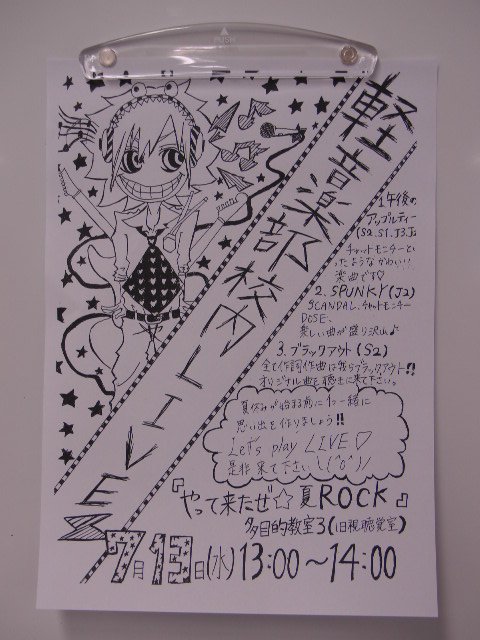 軽音楽部校内LIVE
1.午後の
アップルティー
(S2.S1.J3.J2
チャットモンチーとい
ったようなかわいい
楽曲です♡
2.SPUNKY(J2)
SCANDAL、チャットモンチー
DOSE、
楽しい曲が盛り沢山♪
3.ブラックアウト(S2)
全て作詞作曲は我らブラックアウト!!
オリジナル曲を聴きに来て下さい。
夏休みが始まる前に1つ一緒に
思い出を作りましょう!!
Let's play LIVE♡
是非来て下さい\(^o^)/
『やって来たぜ☆夏ROCK』
多目的教室3(旧視聴覚室)
7月13日(水)13:00～14:00